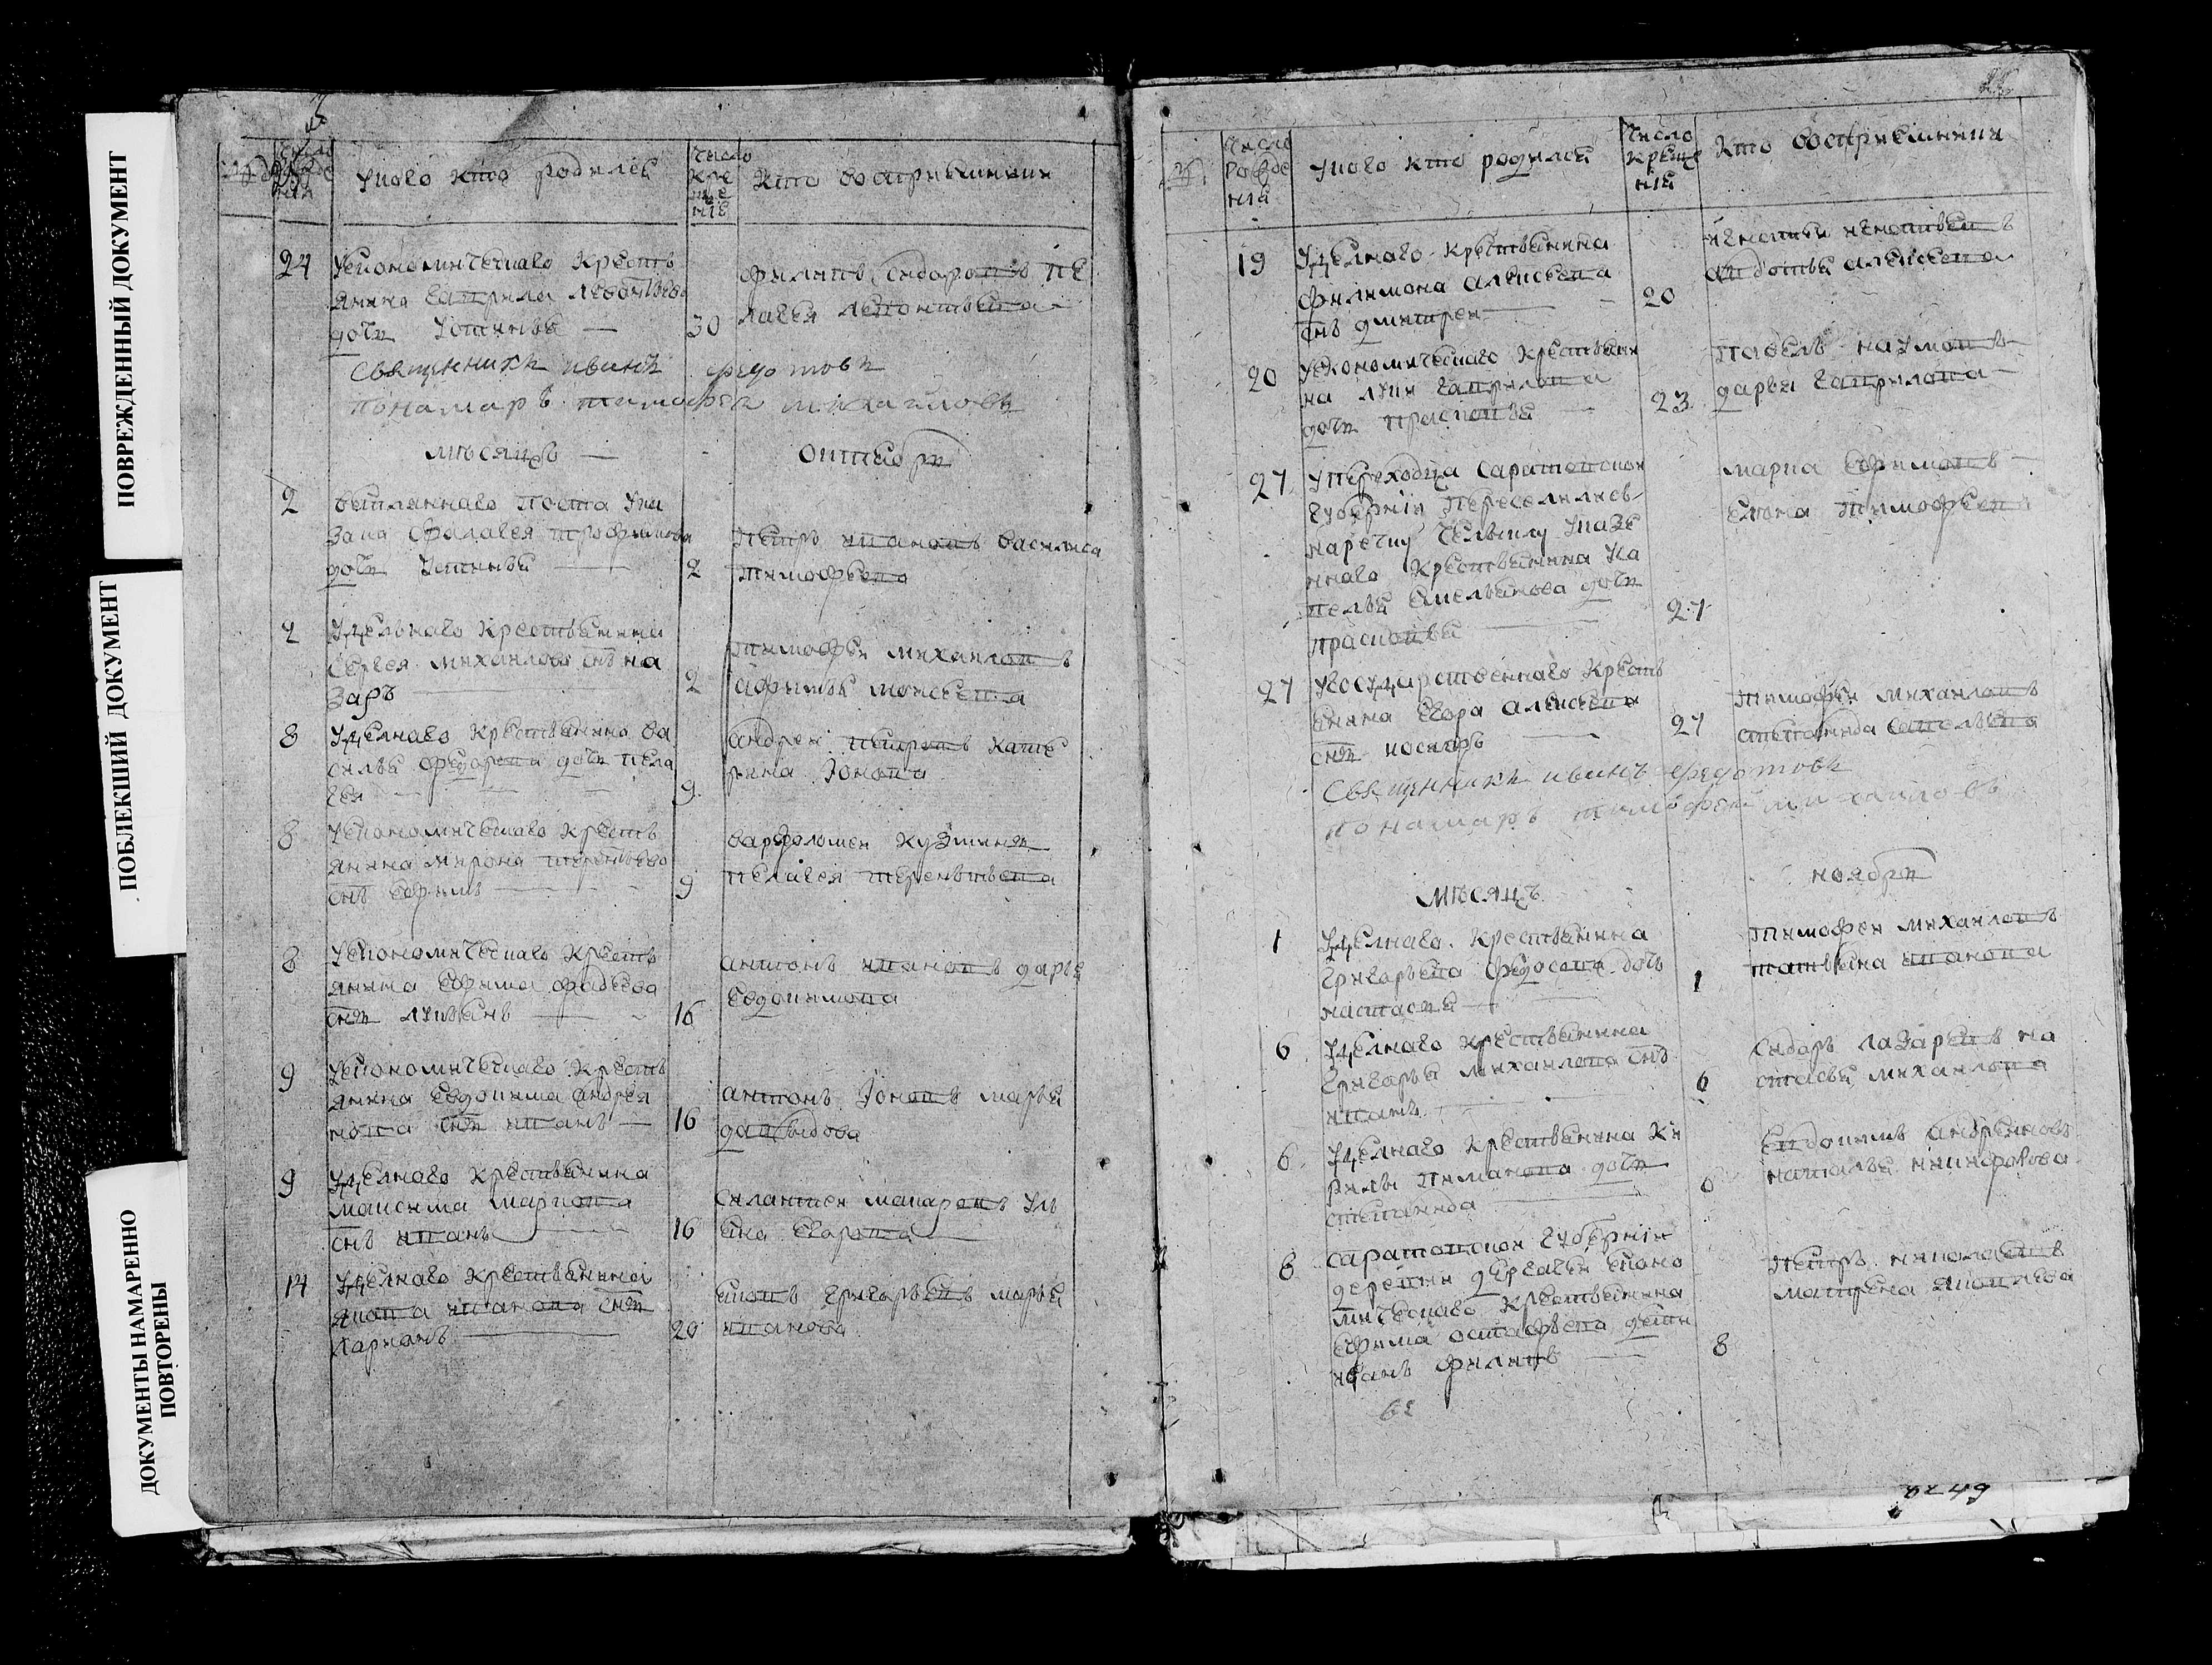 ПОВРЕЖДЕННЫЙ ДОКУМЕНТ
ПОБЛЕКШИЙ ДОКУМЕНТ
ДОКУМЕНТЫ НАМАРЕННО
ПОВТОРЕНЫ
Укого кто родилсь
Число
кре
ще
ніе
Кто восприемники
24
Уекономическаго крестъ
янина Гаврила Леонтьева
дочь Устинья
30
Филипъ Сидоровъ пе
лагея Леонтьева
Священникъ иванъ федотовъ
понамаръ тимофей михайловъ
мѣсяцъ
октября
2
ветляннаго поста Ука
зака Фалалея трофимова
дочь Устинья
2
Петръ ивановъ василиса
тимофеева
2
Удельнаго крестьянина
Сергея михайлова снъ на
заръ
2
тимофей михайловъ
афимья моисеева
8
Уделнаго крестьянина ва
силья федорова дочь пела
гея
9
андрей петровъ кате
рина Іонова
8
Уекономическаго крестъ
янина мирона терентьева
снъ ефимъ
9
варфоломей кузминъ
пелагея терентьева
8
Уекономическаго крестъ
янина ефима фадѣева
снъ лукьянъ
16
антонъ ивановъ дарья
евдокимова
9
Уекономическаго крестъ
янина евдокима андрея
нова снъ иванъ
16
антонъ Іоновъ марья
давыдова
9
Уделнаго крестьянина
максима маркова
снъ иванъ
16
Силантей макаровъ Уль
яна егорова
14
Уделнаго крестьянина
якова иванова снъ
ларионъ
20
яковъ григорьевъ марья
иванова
Число
рожде
нія
Укого кто родился
Число
креще
нія
Кто восприемники
19
Уделнаго крестьянина
филимона алексеева
снъ дмитрей
20
игнатей игнатьевъ
авдотья алексеева
20
Уекономическаго крестьяни
на луки гаврилова
дочь прасковья
23
павелъ наумовъ
дарья гаврилова
27
Упереходца Саратовской
губерніи переселились
наречку
ннаго крестьянина
емельянова дочь
прасковья
27
марка ефимовъ
елена тимофеева
27
Угосударственнаго крестъ
янина егора алексеева
снъ носиръ
27
тимофей михайловъ
степанида савельева
Священникъ иванъ федотовъ
понамаръ тимофей михайловъ
мѣсяцъ
ноября
1
Уделнаго крестьянина
григорьева федосова дочь
настасья
1
тимофей михайловъ
татьяна иванова
6
Уделнаго крестьянина
григорья михайлова снъ
игнатъ
6
Сидоръ лазаревъ на
стасья михайлова
6
Уделнаго крестьянина ки
рилы пиманова дочь
степанида
6
евдокимъ андреяновъ
наталья никифорова
8
Саратовской губерніи
деревни дергачей еконо
мическаго крестьянина
ефима остафьева дети
иванъ филипъ
8
петръ николаевъ
матрена яковлева